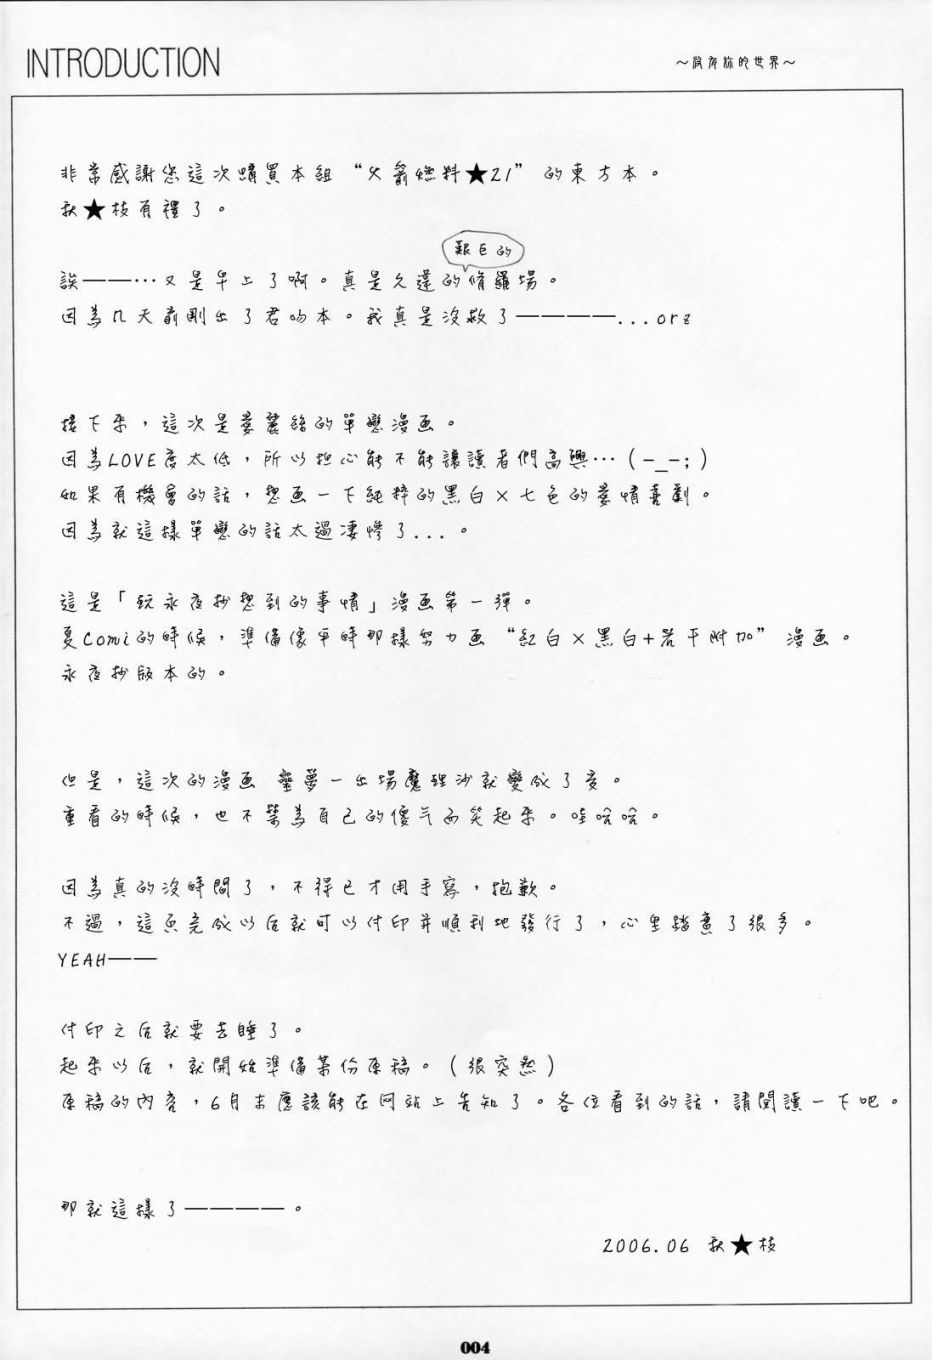 INTRODUCTION
～沒有你的世界～
非常感謝您這次購買本組 “火箭燃料★21” 的東方本。
秋★枝有禮了。
艱巨的
誒——…又是早上了啊。真是久違的修羅場。
因為几天前剛出了君吻本。我真是沒救了————...orz
接下來，這次是愛麗絲的單戀漫画。
因為LOVE度太低，所以担心能不能讓讀者們高興…（-_-;）
如果有機會的話，想画一下純粹的黑白×七色的愛情喜劇。
因為就這樣單戀的話太過凄慘了...。
這是「玩永夜抄想到的事情」漫画第一彈。
夏comi的時候，準備像平時那樣努力画 “紅白×黑白+若干附加” 漫画。
永夜抄版本的。
但是，這次的漫画 靈夢一出場魔理沙就變成了受。
重看的時候，也不禁為自己的傻气而笑起來。哇哈哈。
因為真的沒時間了，不得已才用手寫，抱歉。
不過，這頁完成以后就可以付印并順利地發行了，心里踏實了很多。
YEAH——
付印之后就要去睡了。
起來以后，就開始準備某份原稿。（很突然）
原稿的內容，6月末應該能在网站上告知了。各位看到的話，請閱讀一下吧。
那就這樣了————。
2006.06 秋★枝
004